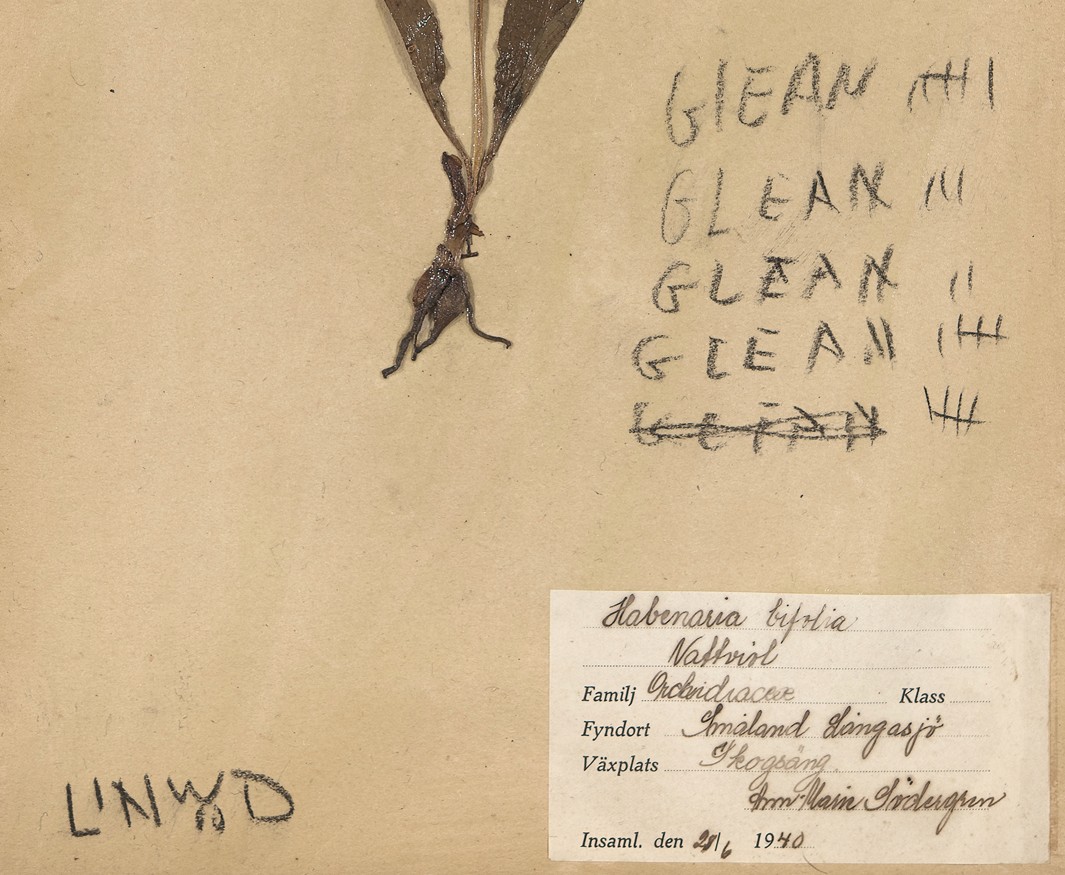 GLEAN
GLEAN
GLEAN
GLEAN
GLEAN
Habenaria bifolia
Nattviol
Familj Orchidiaceæ Klass
Fyndort Småland Långasjö
Växplats Skogsäng
Ann-Marie Södergren
Insaml. den 28/6 1940